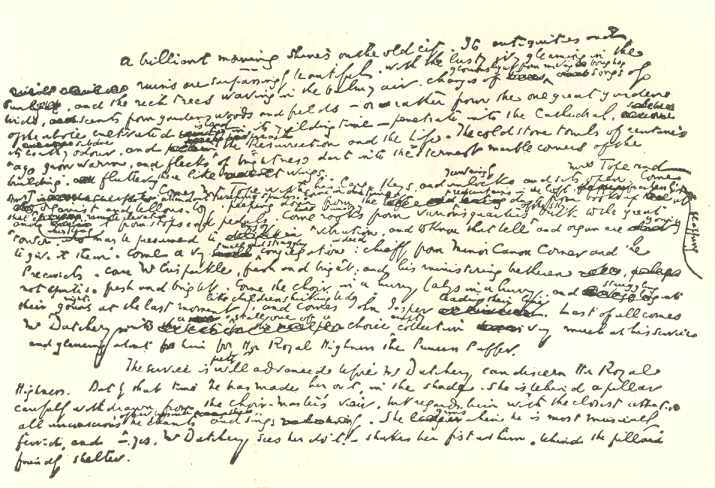 A brilliant morning shines on the old city. Its antiquities and
ruins are surpassingly beautiful, with the lusty ivy gleaming in the
sun, and the rich trees waving in the balmy air. Changes of glorious light from moving boughs, songs of
birds, scents from gardens, woods and fields – or rather from the one great garden
of the whole cultivated island in its yielding time – penetrate into the Cathedral, subdue
its earthy odour, and preach the Resurrection and the Life. The cold stone tombs of centuries
ago grow warm, and flecks of brightness dart into the sternest marble corners of the
building, fluttering there like wings.
Comes Mr Tope with his large keys, and yawningly unlocks and sets open. Come Mrs Tope and
attendant sweeping sprites. Come, in due time, organist and
bellows boy, peeping down from the red curtains in the loft, fearlessly flapping dust from books up at
that remote elevation, and whisking it from stops and pedals. Come rooks from various quarters of the sky, back to the great
tower, who may be presumed to enjoy vibration, and to know that bell and organ are going
to give it them. Come a very small and straggling congregation indeed: chiefly from Minor Canon Corner and the
Precincts. Come Mr Crisparkle, fresh and bright, and his ministering brethren
not quite so fresh and bright. Come the choir in a hurry (always in a hurry, and struggling into
their nightgowns at the last moment, like children shirking bed), and comes John Jasper leading their line. Last of all comes
Mr Datchery into a stall, one of a choice empty collection very much at his service
and glancing about him for Her Royal Highness the Princess Puffer.
The service is pretty well advanced before Mr Datchery can discern Her Royal
Highness. But by that time he has made her out, in the shade. She is behind a pillar
carefully withdrawn from the choir-master's view, but regards him with the closest attention
all unconscious of her presence, he chants and sings. She grins when he is most musically
fervid, and – yes, Mr Datchery sees her do it! – shakes her fist at him, behind the pillar's
friendly shelter.